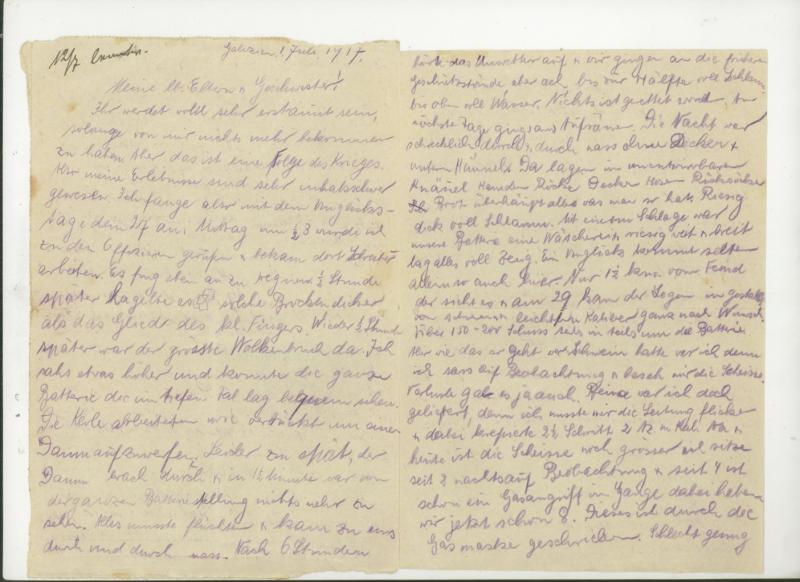 12/7
Galizien, 1. Juli 1917.
Meine lb. Eltern u. Geschwister!
Ihr werdet wohl sehr erstaunt sein,
solange von mir nichts mehr bekommen
zu haben. Aber das ist eine Folge des Krieges.
Aber meine Erlebnisse sind sehr inhaltschwer
gewesen. Ich fange aber mit dem Unglücks-
tag an. Mittag um ½ 3 wurde ich
zu den Offizieren gerufen u bekam dort Schreib
arbeiten. Es fing eben an zu regnen ½ Stunde
später hagelte es solche Brocken dicker
als das Glied des kl. Fingers. Wieder ½ Stund
später war der grösste Wolkenbruch da. Ich
sass etwas höher und konnte die ganze
Batterie die im tiefen Tal lag bequem sehen.
Die Kerle arbeiteten wie verrückt um einen
Damm aufzuwerfen. Leider zu spät, der
Damm brach durch u in 1½ Minute war von
der ganzen Batteriestellung nichts mehr zu
sehen. Alles musste flüchten u kam zu uns
durch und durch nass. Nach 6 Stunden
hörte das Unwetter auf u wir gingen an die früheren
Geschützstände aber ach, bis zur Hälfte voll Schlamm
bis oben voll Wasser. Nichts ist gerettet worden. Am
nächsten Tage gings ans Aufräumen. Die Nacht war
schrecklich durch u durch nass ohne Decken
unterm Himmel. Da lagen im
Knäuel Hemden Röcke Decken Hosen Rucksäcke
Brot überhaupt alles was man so hat. Riesig
dick voll Schlamm. Mit einem Schlage war
unsere Batterie eine Wäscherei u riesig weit u breit
lag alles voll Zeug. Ein Unglück kommt selten
allein so auch hier. Nur 1½ km vom Feind
der sieht es u am 29 kam der Segen in Gestalt
von leichten Kaliber ganz nach Wunsch.
Über 150-200 Schuss teils in teils um die Batterie
Aber wie das so geht Schwein hatte wer ich denn
ich sass auf Beobachtung u besah mir die Scheisse.
Verluste gab es ja auch. Beinah war ich doch
geliefert, denn ich musste mir die Leitung flicken
u dabei krepierte 2½ Schritt
heute ist die Scheisse noch grösser ich sitze
seit 2 nachts auf Beobachtung u seit 4 ist
schon ein Gasangriff im Gange dabei haben
wir jetzt schon 8. Dieses ist durch die
Gasmaske geschrieben. Schlecht genug